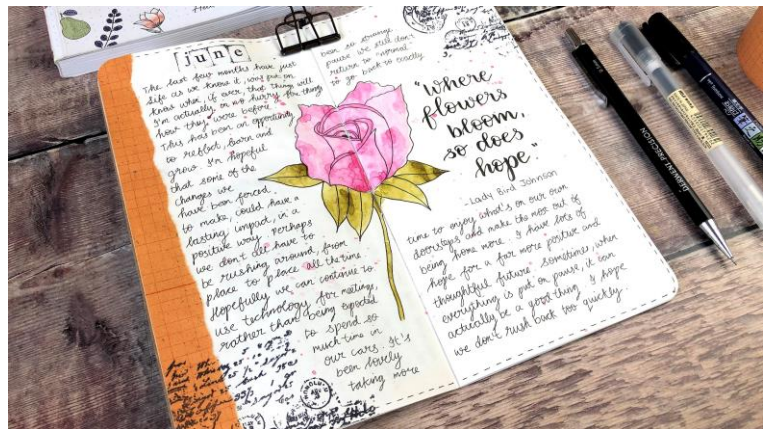 june
The last few months have just
been so strange
life as we know it, was put on
pause we still don't
know when, if ever, that things will
return to normal.
I'm actually in no hurry for things
to go back to exactly
how they were before.
This has been an opportunity
to reflect, learn and
grow. I'm hopeful
that some of the
changes we
have been forced
to make, could have a
lasting impact, in a
positive way. Perhaps
we don't all have to
be rushing around, from
place to place all the time.
Hopefully we can continue to
use technology for meetings,
rather than being expected
to spend so
much time in
our cars. It's
been lovely
taking more
"Where
flowers
bloom,
so does
hope."
-Lady Bird Johnson
time to enjoy what's on our own
doorsteps and make the most out of
being home more. I have lots of
hope for a far more positive and
thoughtful future. Sometimes, when
everything is put on pause, it can
actually be a good thing. I hope
we don't rush back too quickly.
DERWENT PRECISION